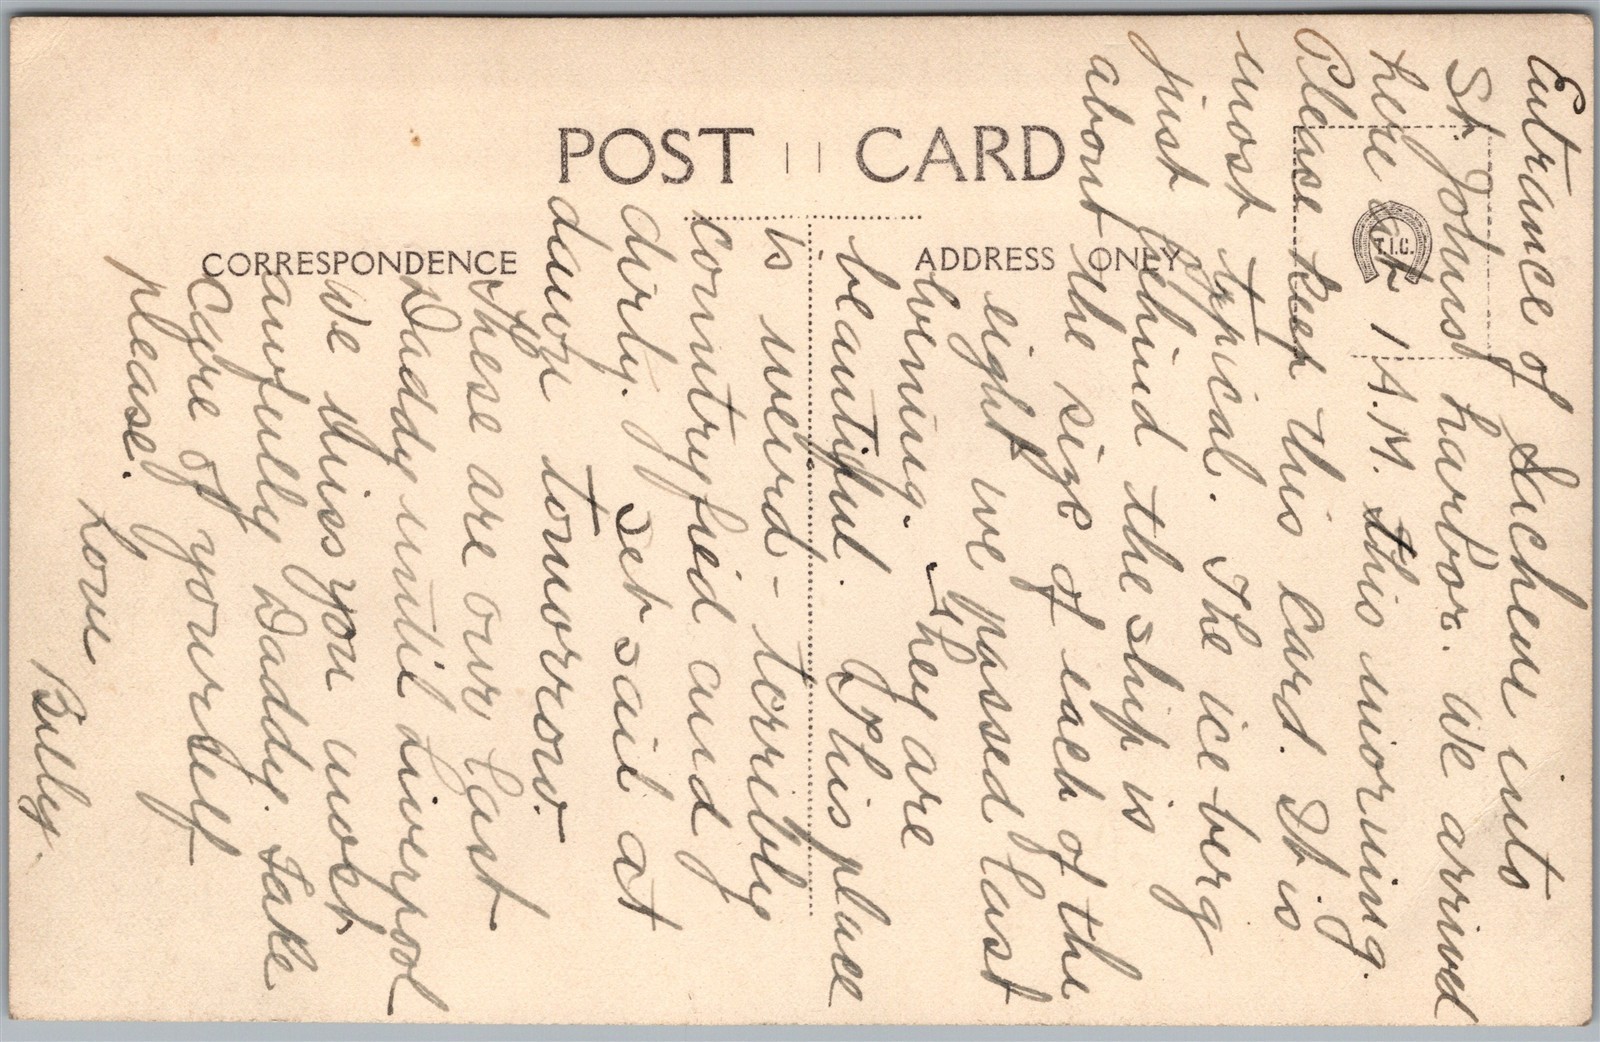 POST CARD
CORRESPONDENCE
ADDRESS ONLY
T.I.C.
Entrance of Sachem into
St. Johns harbor. We arrived
here at 1 A.M. this morning.
Please keep this card. It is
most typical. The ice-berg
just behind the ship is
about the size of each of the
eight we passed last
evening. They are
beautiful. This place
is weird - terribly
countryfied and
dirty. Set sail at
dawn tomorrow.
These are our last
Daddy until Liverpool
We miss you most
awfully Daddy. Take
care of yourself
please.
Love
Billy.